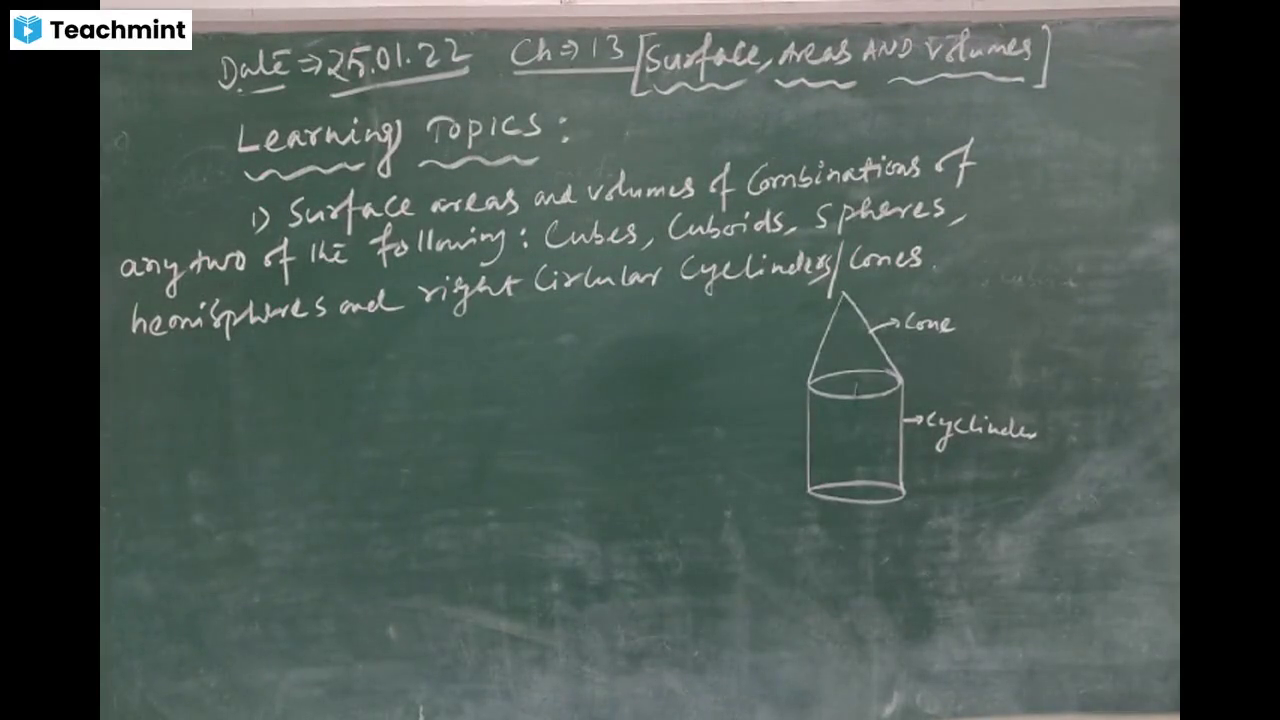 Teachmint
Date ⇒ 25.01.22 Ch ⇒ 13 [Surface, Areas AND Volumes]
Learning Topics :
1) Surface areas and volumes of Combinations of
any two of the following : Cubes, Cuboids, Spheres,
hemispheres and right Circular Cyclinders/Cones.
→ Cone
→ Cyclinder